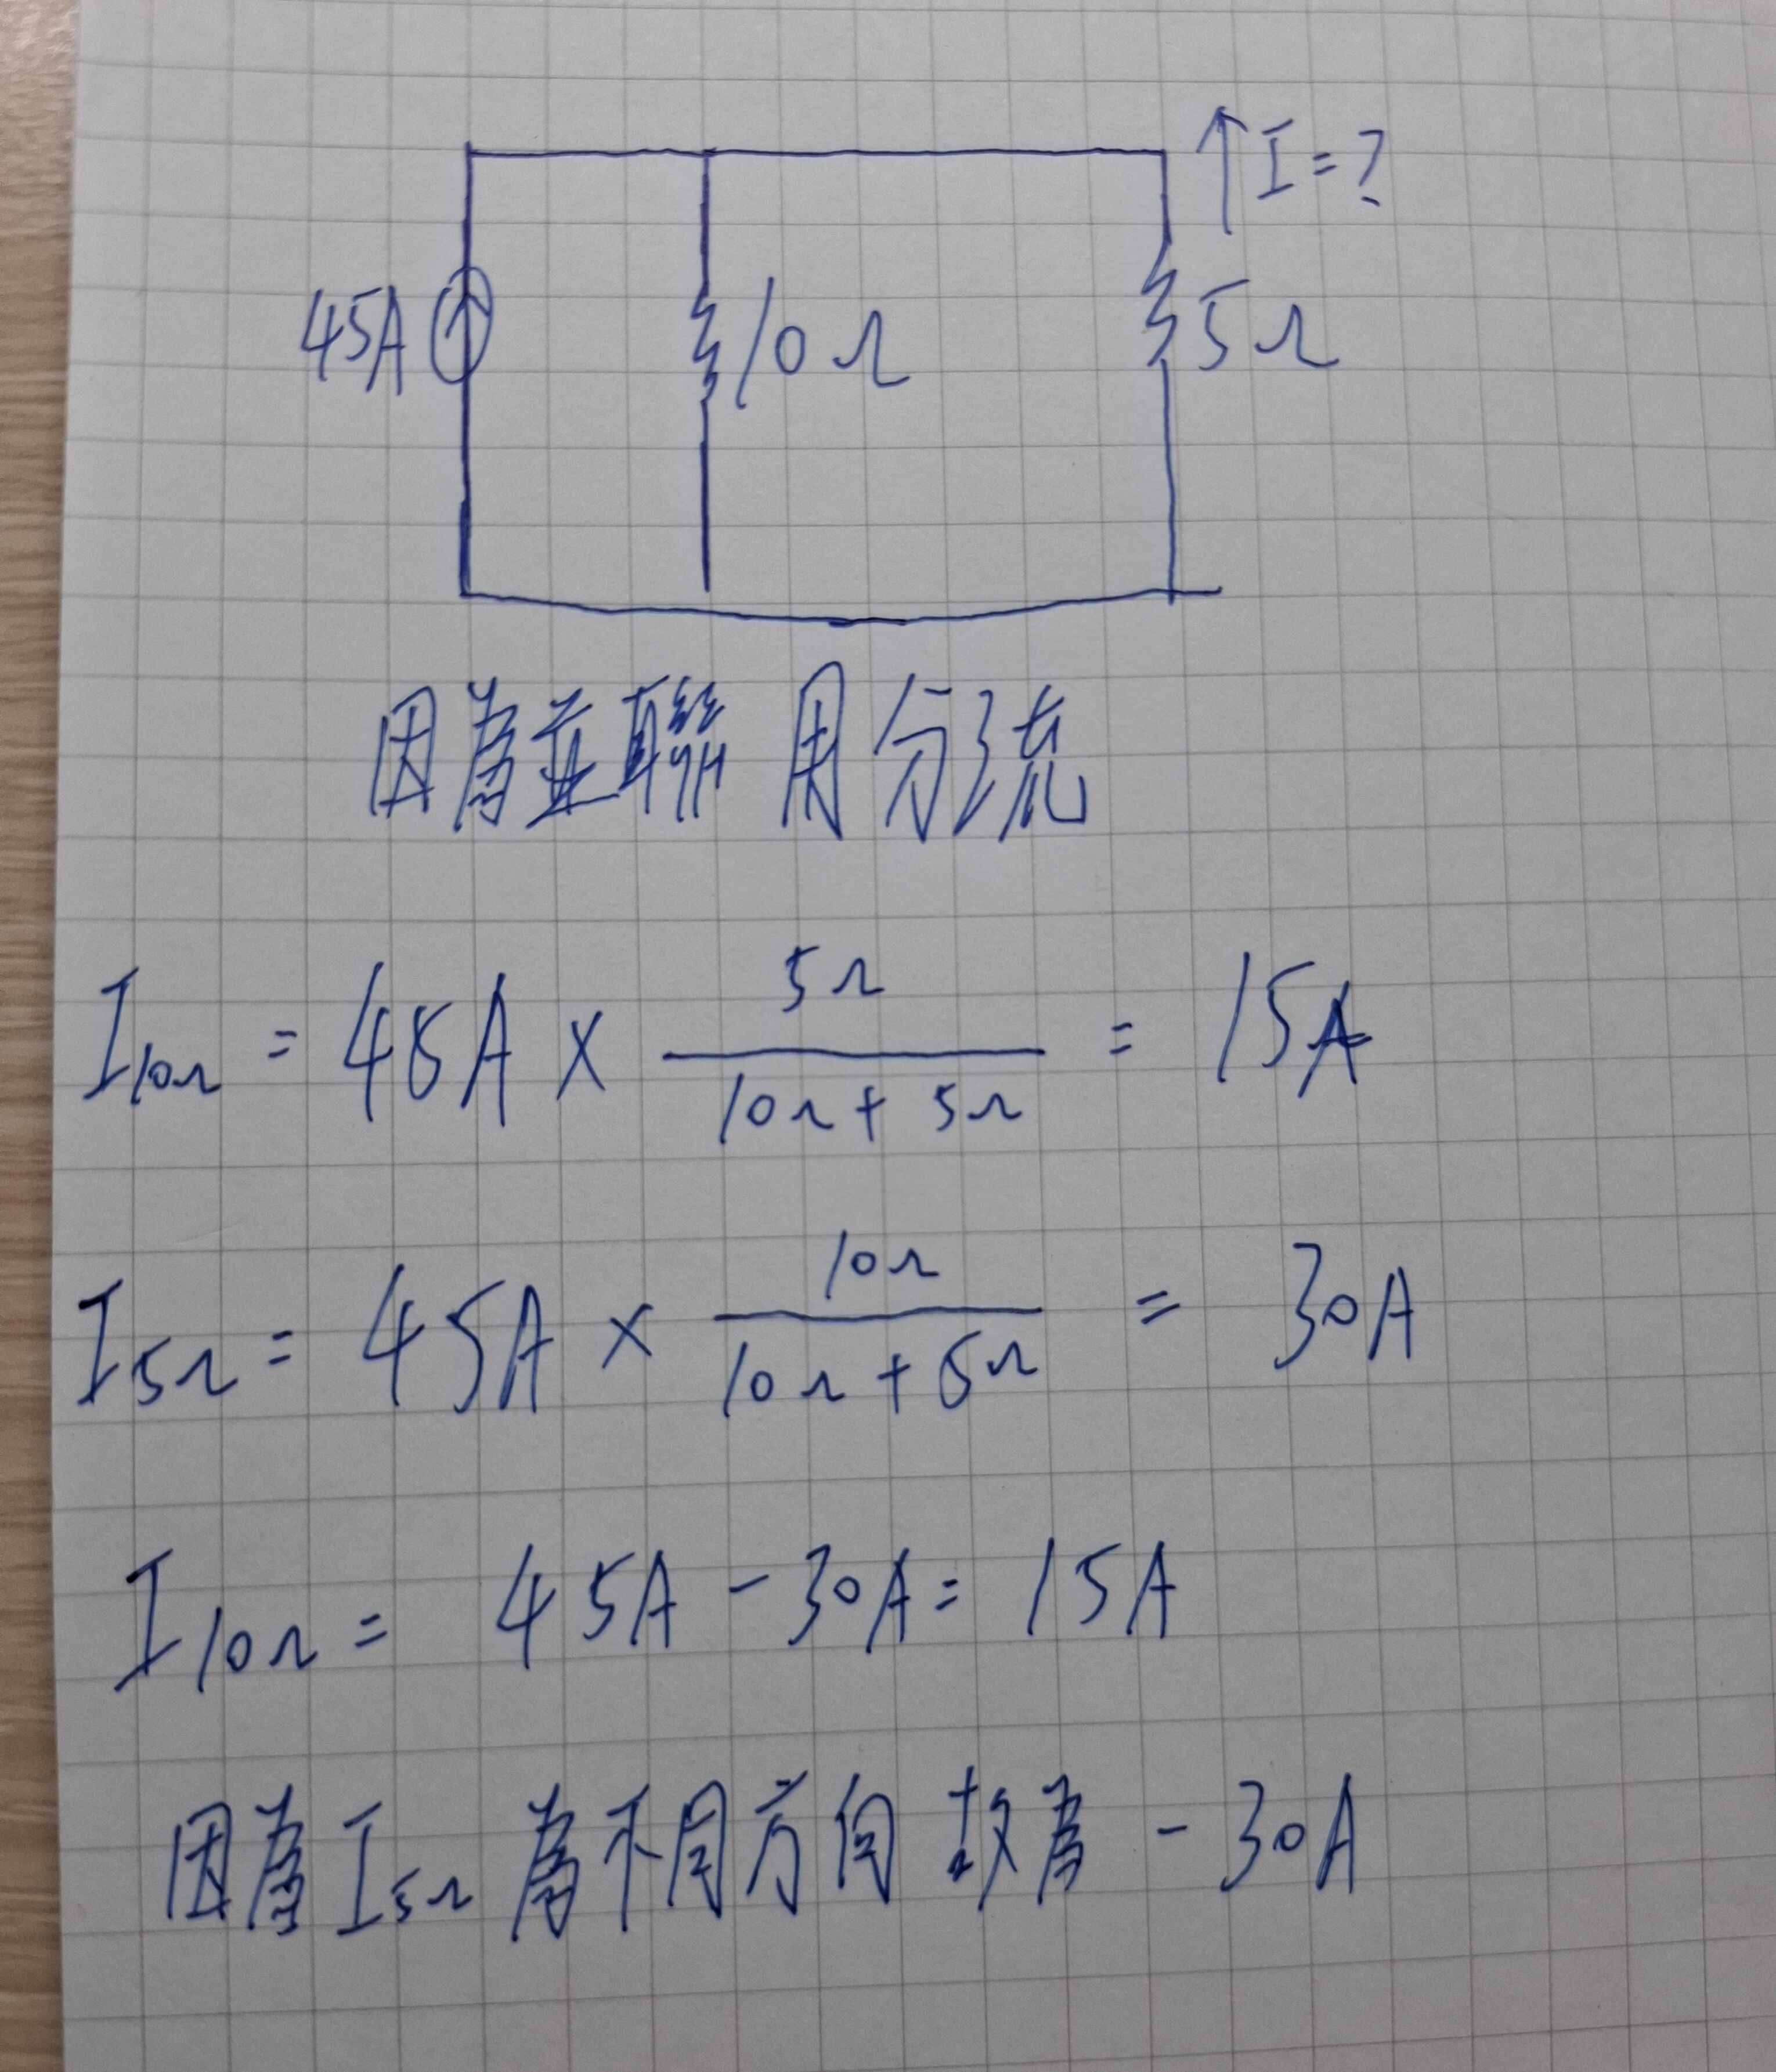 ↑I=?
45A
10Ω
5Ω
因為並聯 用分流
I10Ω = 45A × 5Ω / 10Ω + 5Ω = 15A
I5Ω = 45A × 10Ω / 10Ω + 5Ω = 30A
I10Ω = 45A - 30A = 15A
因為 I5Ω 為不同方向 故為 -30A